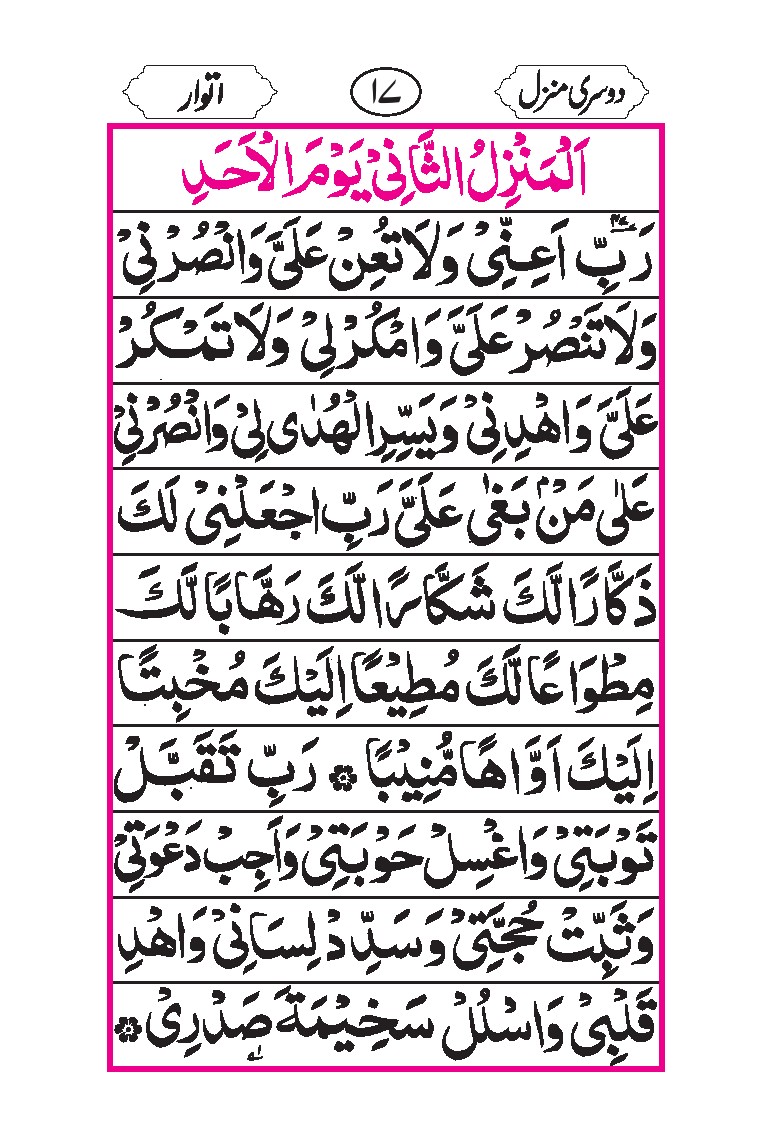 دوسری منزل ۱۷ اتوار
اَلْمَنْزِلُ الثَّانِیْ یَوْمَ الْاَحَدِ
رَبِّ اَعِنِّیْ وَلَا تُعِنْ عَلَیَّ وَانْصُرْنِیْ
وَلَا تَنْصُرْ عَلَیَّ وَامْكُرْ لِیْ وَلَا تَمْكُرْ
عَلَیَّ وَاهْدِنِیْ وَیَسِّرِ الْهُدٰی لِیْ وَانْصُرْنِیْ
عَلٰی مَنْۢ بَغٰی عَلَیَّ رَبِّ اجْعَلْنِیْ لَكَ
ذَكَّارًا لَّكَ شَكَّارًا لَّكَ رَهَّابًا لَّكَ
مِطْوَاعًا لَّكَ مُطِیْعًا اِلَیْكَ مُخْبِتًا
اِلَیْكَ اَوَّاهًا مُّنِیْبًا ۞ رَبِّ تَقَبَّلْ
تَوْبَتِیْ وَاغْسِلْ حَوْبَتِیْ وَاَجِبْ دَعْوَتِیْ
وَثَبِّتْ حُجَّتِیْ وَسَدِّدْ لِسَانِیْ وَاهْدِ
قَلْبِیْ وَاسْلُلْ سَخِیْمَةَ صَدْرِیْ ۞